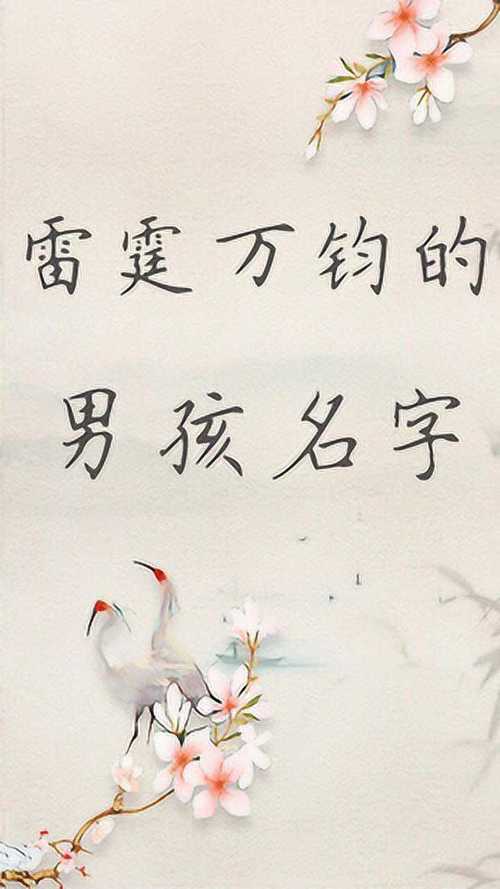 雷霆万钧的
男孩名字